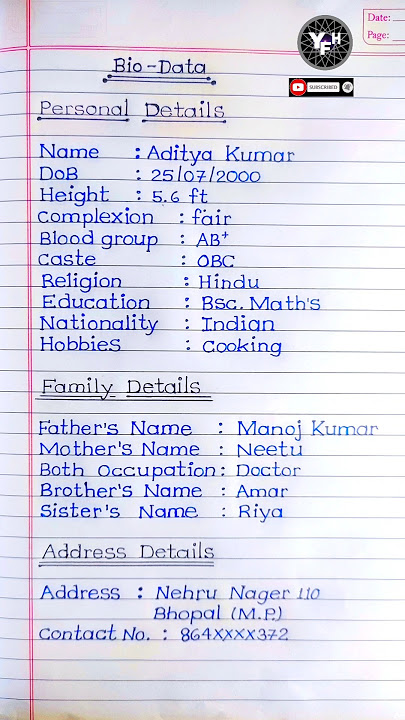 Date:
Page:
YFH
SUBSCRIBED
Bio-Data
Personal Details
Name : Aditya Kumar
DoB : 25/07/2000
Height : 5.6 ft
Complexion : fair
Blood group : AB+
Caste : OBC
Religion : Hindu
Education : Bsc. Math's
Nationality : Indian
Hobbies : Cooking
Family Details
Father's Name : Manoj Kumar
Mother's Name : Neetu
Both Occupation : Doctor
Brother's Name : Amar
Sister's Name : Riya
Address Details
Address : Nehru Nager 110
Bhopal (M.P.)
Contact No. : 864XXXX372